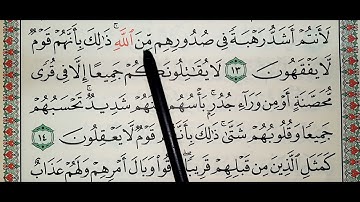 لَأَنتُمْ أَشَدُّ رَهْبَةً فِي صُدُورِهِم مِّنَ ٱللَّهِ ۚ ذَٰلِكَ بِأَنَّهُمْ قَوْمٌ
لَّا يَفْقَهُونَ ١٣ لَا يُقَٰتِلُونَكُمْ جَمِيعًا إِلَّا فِي قُرًى
مُّحَصَّنَةٍ أَوْ مِن وَرَآءِ جُدُرٍۭ ۚ بَأْسُهُم شَدِيدٌ ۚ تَحْسَبُهُمْ
جَمِيعًا وَقُلُوبُهُمْ شَتَّىٰ ۚ ذَٰلِكَ بِأَنَّهُمْ قَوْمٌ لَّا يَعْقِلُونَ ١٤
كَمَثَلِ ٱلَّذِينَ مِن قَبْلِهِمْ قَرِيبًا ۖ ذَاقُوا۟ وَبَالَ أَمْرِهِمْ وَلَهُمْ عَذَابٌ